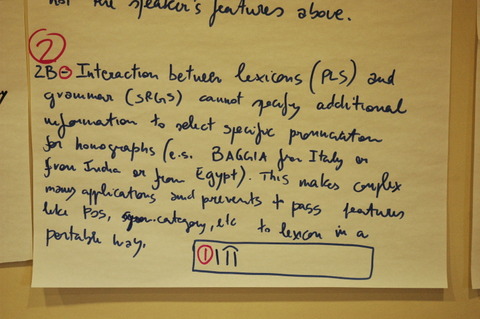 not the speaker's features above.
2
2B Interaction between lexicons (PLS) and
grammar (SRGS) cannot specify additional
information to select specific pronunciation
for homographs (e.s. BAGGIA from Italy or
from India or from Egypt). This makes complex
many applications and prevents t pass features
like POS, category, etc to lexicon in a
portable way.
1